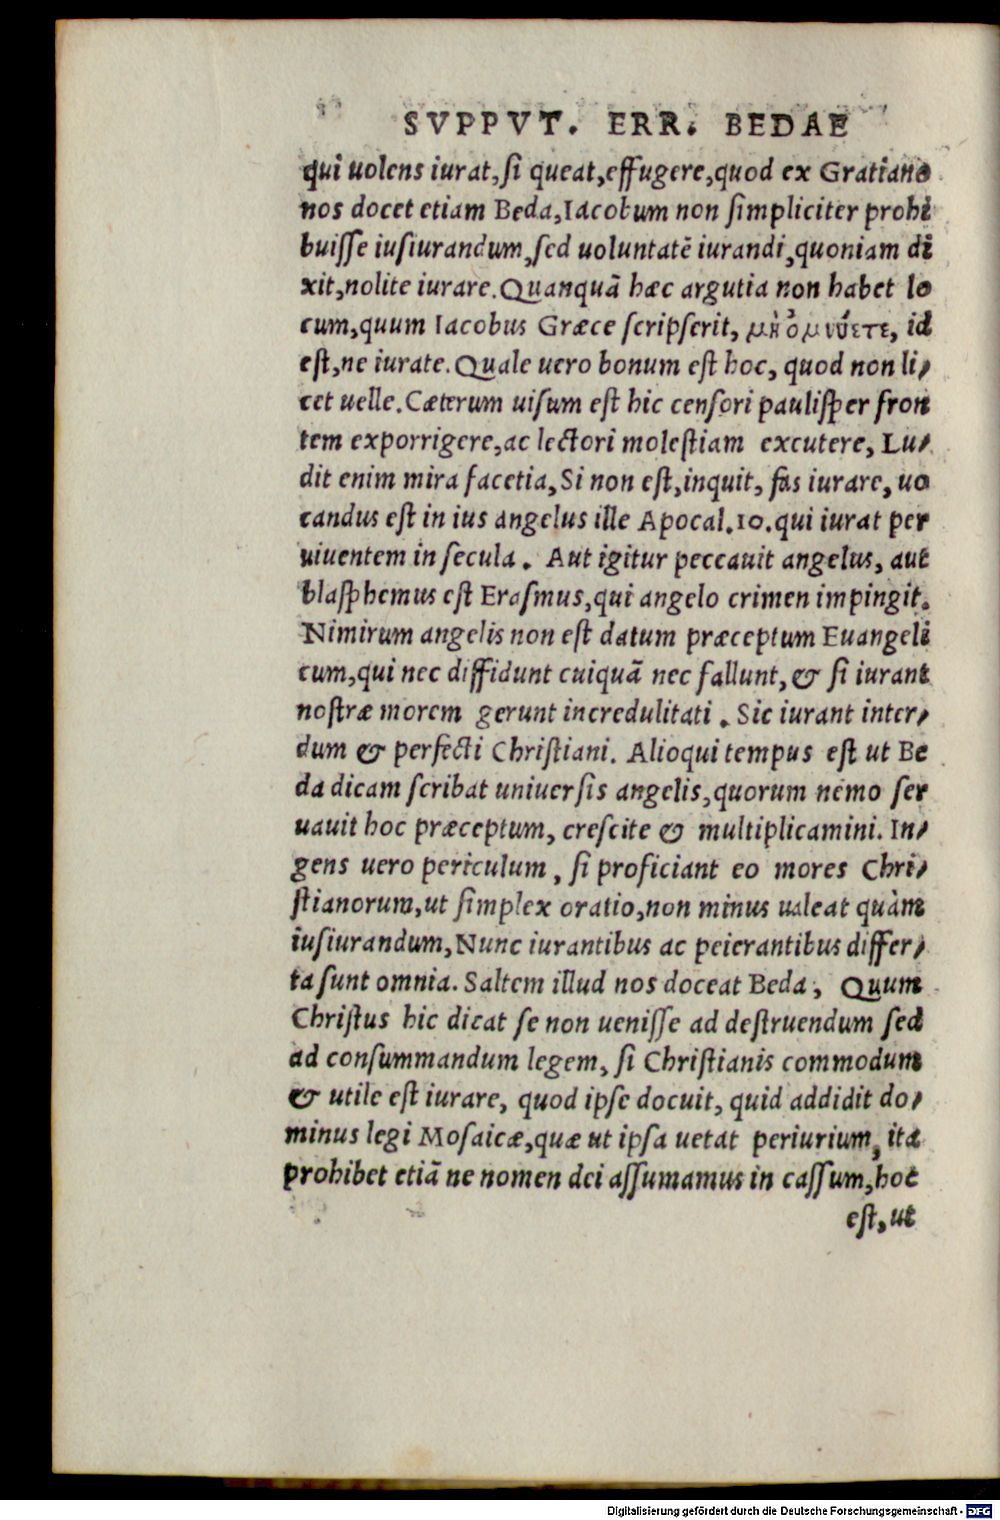 SVPPVT. ERR. BEDAE
qui uolens iurat, si queat, effugere, quod ex Gratiano
nos docet etiam Beda, Iacobum non simpliciter prohi
buisse iusiurandum, sed uoluntatē iurandi, quoniam di
xit, nolite iurare. Quanquā hæc argutia non habet lo
cum, quum Iacobus Græce scripserit, μὴ ὀμνύετε, id
est, ne iurate. Quale uero bonum est hoc, quod non li/
cet uelle. Cæterum uisum est hic censori paulisper fron
tem exporrigere, ac lectori molestiam excutere, Lu/
dit enim mira facetia, Si non est, inquit, fas iurare, uo
candus est in ius angelus ille Apocal. 10. qui iurat per
uiuentem in secula. Aut igitur peccauit angelus, aut
blasphemus est Erasmus, qui angelo crimen impingit.
Nimirum angelis non est datum præceptum Euangeli
cum, qui nec diffidunt cuiquā nec fallunt, & si iurant
nostræ morem gerunt incredulitati. Sic iurant inter/
dum & perfecti Christiani. Alioqui tempus est ut Be
da dicam scribat uniuersis angelis, quorum nemo ser
uauit hoc præceptum, crescite & multiplicamini. In/
gens uero periculum, si proficiant eo mores Chri/
stianorum, ut simplex oratio, non minus ualeat quàm
iusiurandum, Nunc iurantibus ac peierantibus differ/
ta sunt omnia. Saltem illud nos doceat Beda, Quum
Christus hic dicat se non uenisse ad destruendum sed
ad consummandum legem, si Christianis commodum
& utile est iurare, quod ipse docuit, quid addidit do/
minus legi Mosaicæ, quæ ut ipsa uetat periurium, ita
prohibet etiā ne nomen dei assumamus in cassum, hoc
est, ut
Digitalisierung gefördert durch die Deutsche Forschungsgemeinschaft - DFG